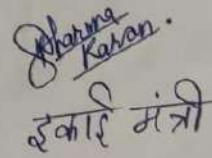 Sharma
Karan.
इकाई मंत्री